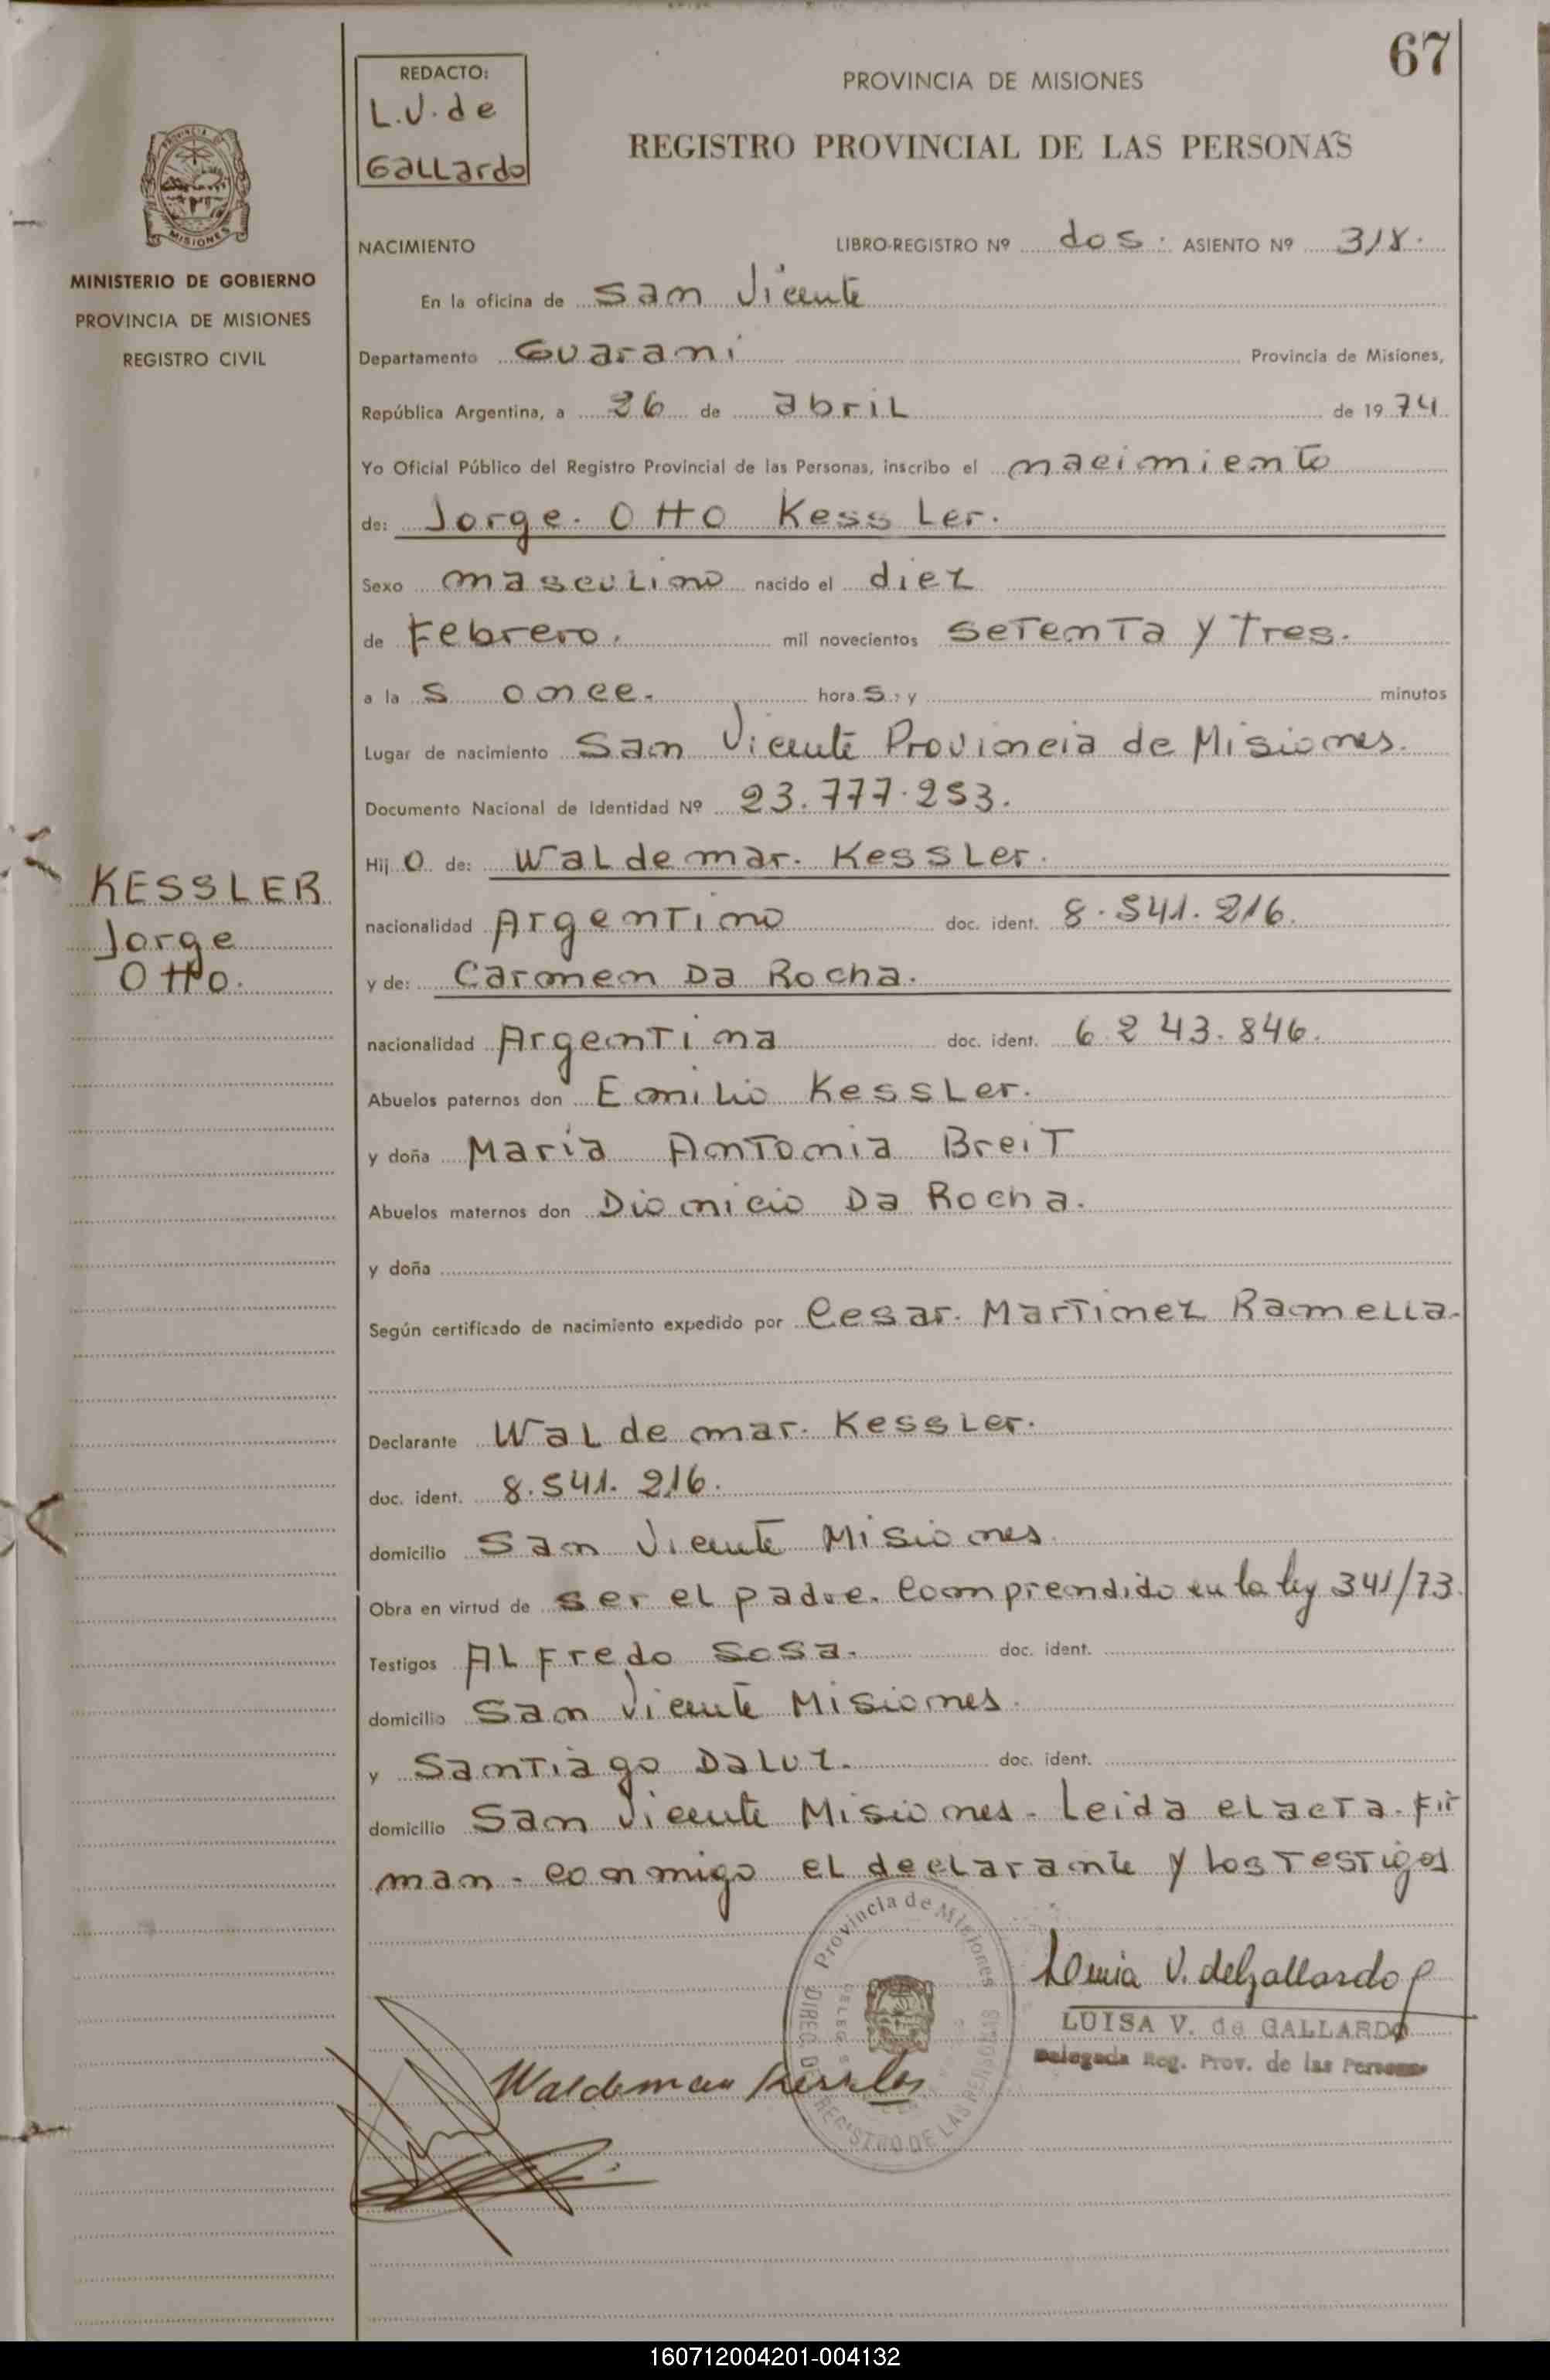 67
REDACTO:
L.V. de
Gallardo
PROVINCIA DE MISIONES
REGISTRO PROVINCIAL DE LAS PERSONAS
MISIONES
MINISTERIO DE GOBIERNO
PROVINCIA DE MISIONES
REGISTRO CIVIL
NACIMIENTO LIBRO-REGISTRO Nº dos. ASIENTO Nº 318.
En la oficina de San Vicente
Departamento Guarani Provincia de Misiones,
República Argentina, a 26 de abril de 1974
Yo Oficial Público del Registro Provincial de las Personas, inscribo el nacimiento
de: Jorge. Otto Kessler.
Sexo masculino nacido el diez
de Febrero. mil novecientos setenta y tres.
a las once. horas. y minutos
Lugar de nacimiento San Vicente Provincia de Misiones.
Documento Nacional de Identidad Nº 23.777.253.
Hijo de: Waldemar. Kessler.
KESSLER
Jorge
Otto.
nacionalidad Argentino doc. ident. 8.541.216.
y de: Carmen Da Rocha.
nacionalidad Argentina doc. ident. 6.243.846.
Abuelos paternos don Emilio Kessler.
y doña María Antonia Breit
Abuelos maternos don Dionicio Da Rocha.
y doña
Según certificado de nacimiento expedido por Cesar. Martinez Ramella.
Declarante Waldemar. Kessler.
doc. ident. 8.541.216.
domicilio San Vicente Misiones
Obra en virtud de ser el padre. Comprendido en la ley 341/73.
Testigos Alfredo Sosa. doc. ident.
domicilio San Vicente Misiones.
y Santiago Daluz. doc. ident.
domicilio San Vicente Misiones. Leida el acta. fir
man. conmigo el declarante y los testigos
Provincia de Misiones
DIREC. DE REGISTRO DE LAS PERSONAS
Luisa V. de Gallardo
LUISA V. de GALLARDO
Delegada Reg. Prov. de las Personas
Waldemar Kessler
160712004201-004132